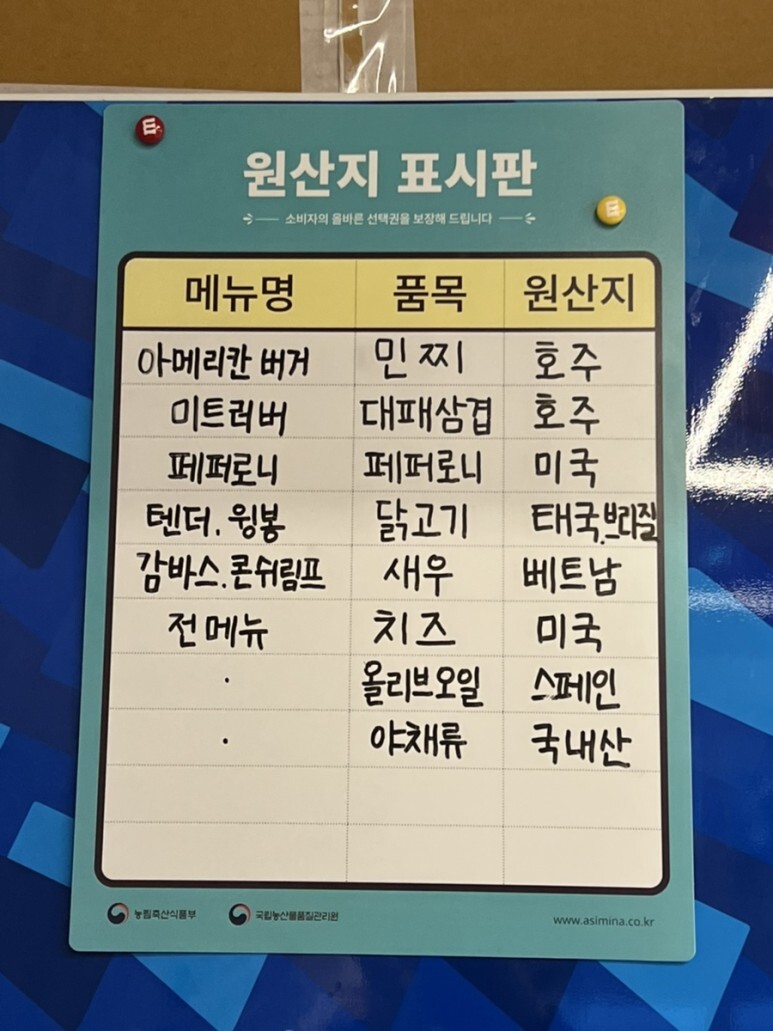 원산지 표시판
소비자의 올바른 선택권을 보장해 드립니다
메뉴명 품목 원산지
아메리칸 버거 민찌 호주
미트러버 대패삼겹 호주
페퍼로니 페퍼로니 미국
텐더. 윙봉 닭고기 태국.브라질
감바스.콘쉬림프 새우 베트남
전메뉴 치즈 미국
· 올리브오일 스페인
· 야채류 국내산
농림축산식품부 국립농산물품질관리원 www.asimina.co.kr